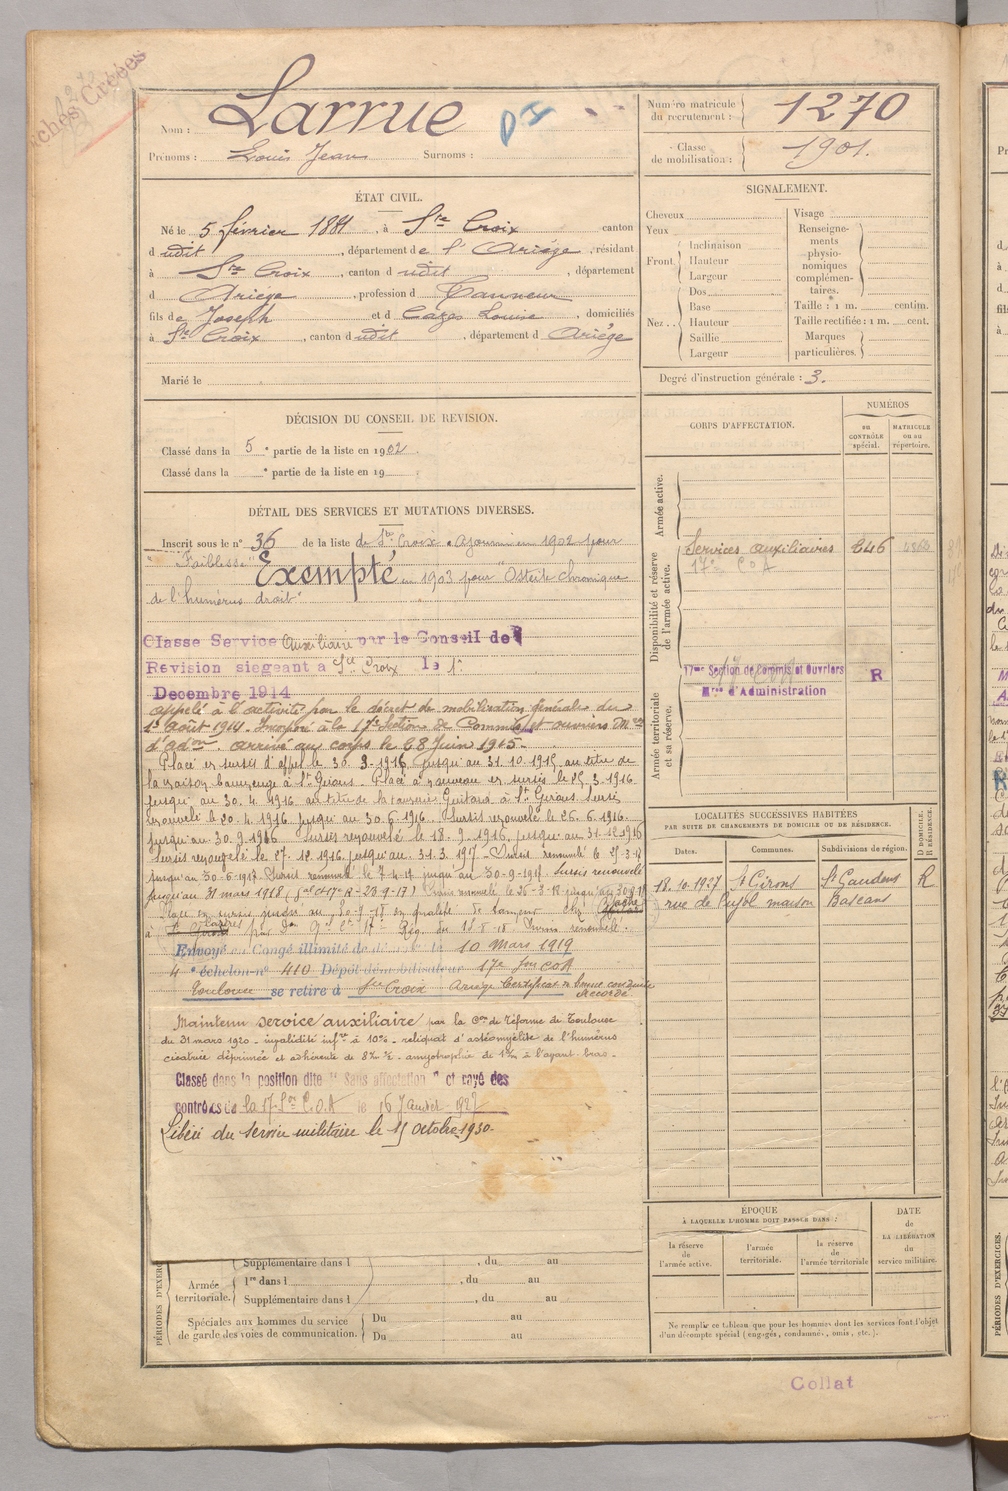 Fiches Créées
Nom : Larrue
Prénoms : Louis Jean Surnoms :
Numéro matricule du recrutement : 1270
Classe de mobilisation : 1901.
ÉTAT CIVIL.
Né le 5 février 1881, à Ste Croix canton
d udit, département de l'Ariège, résidant
à Ste Croix, canton d udit, département
d Ariège, profession d Tanneur
fils de Joseph et d Cazes Louise, domiciliés
à Ste Croix, canton dudit, département d Ariège
Marié le
SIGNALEMENT.
Cheveux
Yeux
Front
Inclinaison
Hauteur
Largeur
Nez
Dos
Base
Hauteur
Saillie
Largeur
Visage
Renseignements physionomiques complémentaires.
Taille : 1 m. centim.
Taille rectifiée : 1 m. cent.
Marques particulières.
Degré d'instruction générale : 3.
DÉCISION DU CONSEIL DE REVISION.
Classé dans la 5e partie de la liste en 1902.
Classé dans la e partie de la liste en 19
DÉTAIL DES SERVICES ET MUTATIONS DIVERSES.
Inscrit sous le n° 36 de la liste de Ste Croix. Ajourné en 1902 pour
"Faiblesse" Exempté en 1903 pour "Ostéite chronique
de l'humérus droit"
Classe Service Auxiliaire par le Conseil de
Revision siegeant a Ste Croix le 1r
Decembre 1914
appelé à l'activité par le décret de mobilisation générale du
1er Août 1914. Incorporé à la 17e Section de Commis et ouvriers Mres
d'adon. arrivé au corps le 28 Juin 1915.
Placé en sursis d'appel le 30. 9. 1915 jusqu'au 31. 10. 1915 au titre de
la maison à St Girons. Placé à nouveau en sursis le 15. 3. 1916
jusqu'au 30. 4. 1916 au titre de la tannerie à St Girons. Sursis
renouvelé le 30. 4. 1916 jusqu'au 30. 6. 1916. Sursis renouvelé le 26. 6. 1916
jusqu'au 30. 9. 1916 Sursis renouvelé le 18. 9. 1916, jusqu'au 31. 12. 1916
Sursis renouvelé le 27. 12. 1916 jusqu'au 31. 3. 1917. Sursis renouvelé le
jusqu'au 30-6-1917. Sursis renouvelé le jusqu'au 30-9-1917. Sursis renouvelé
jusqu'au 31 mars 1918 Sursis renouvelé le 26-3-18 jusqu'au
Placé en sursis jusqu'au 30-9-18 en qualité de tanneur chez
à Sursis renouvelé.
Envoyé en Congé illimité de le 10 Mars 1919
4e échelon n° 410 Dépôt démobilisateur 17e Son COA
Toulouse se retire à Ste Croix Ariège Certificat de bonne conduite accordé
Maintenu service auxiliaire par la Con de réforme de Toulouse
du 31 mars 1920 - invalidité infre à 10% - reliquat d'ostéomyélite de l'humérus
cicatrice déprimée et adhérente de - amyotrophie de à l'avant bras.
Classé dans la position dite "Sans affectation" et rayé des
contrôles de la 17e Son C.O.A le 16 Janvier 1927
Libéré du service militaire le 15 octobre 1930.
CORPS D'AFFECTATION.
NUMÉROS
au contrôle spécial.
matricule ou au répertoire.
Armée active.
Disponibilité et réserve de l'armée active.
Services auxiliaires 646
17e COA
Armée territoriale et sa réserve.
17me Section de Commis et Ouvriers
Mres d'Administration R
LOCALITÉS SUCCESSIVES HABITÉES
PAR SUITE DE CHANGEMENTS DE DOMICILE OU DE RÉSIDENCE.
Dates. Communes. Subdivisions de région. D DOMICILE. R RÉSIDENCE.
18.10.1927 St Girons St Gaudens R
rue de Pujol maison Bascans
ÉPOQUE
À LAQUELLE L'HOMME DOIT PASSER DANS :
la réserve de l'armée active.
l'armée territoriale.
la réserve de l'armée territoriale
DATE de LA LIBÉRATION du service militaire.
Ne remplir ce tableau que pour les hommes dont les services font l'objet
d'un décompte spécial (engagés, condamnés, omis, etc.).
PÉRIODES D'EXERC
Supplémentaire dans l , du au
Armée territoriale.
1re dans l , du au
Supplémentaire dans l , du au
Spéciales aux hommes du service
de garde des voies de communication.
Du au
Du au
Collat